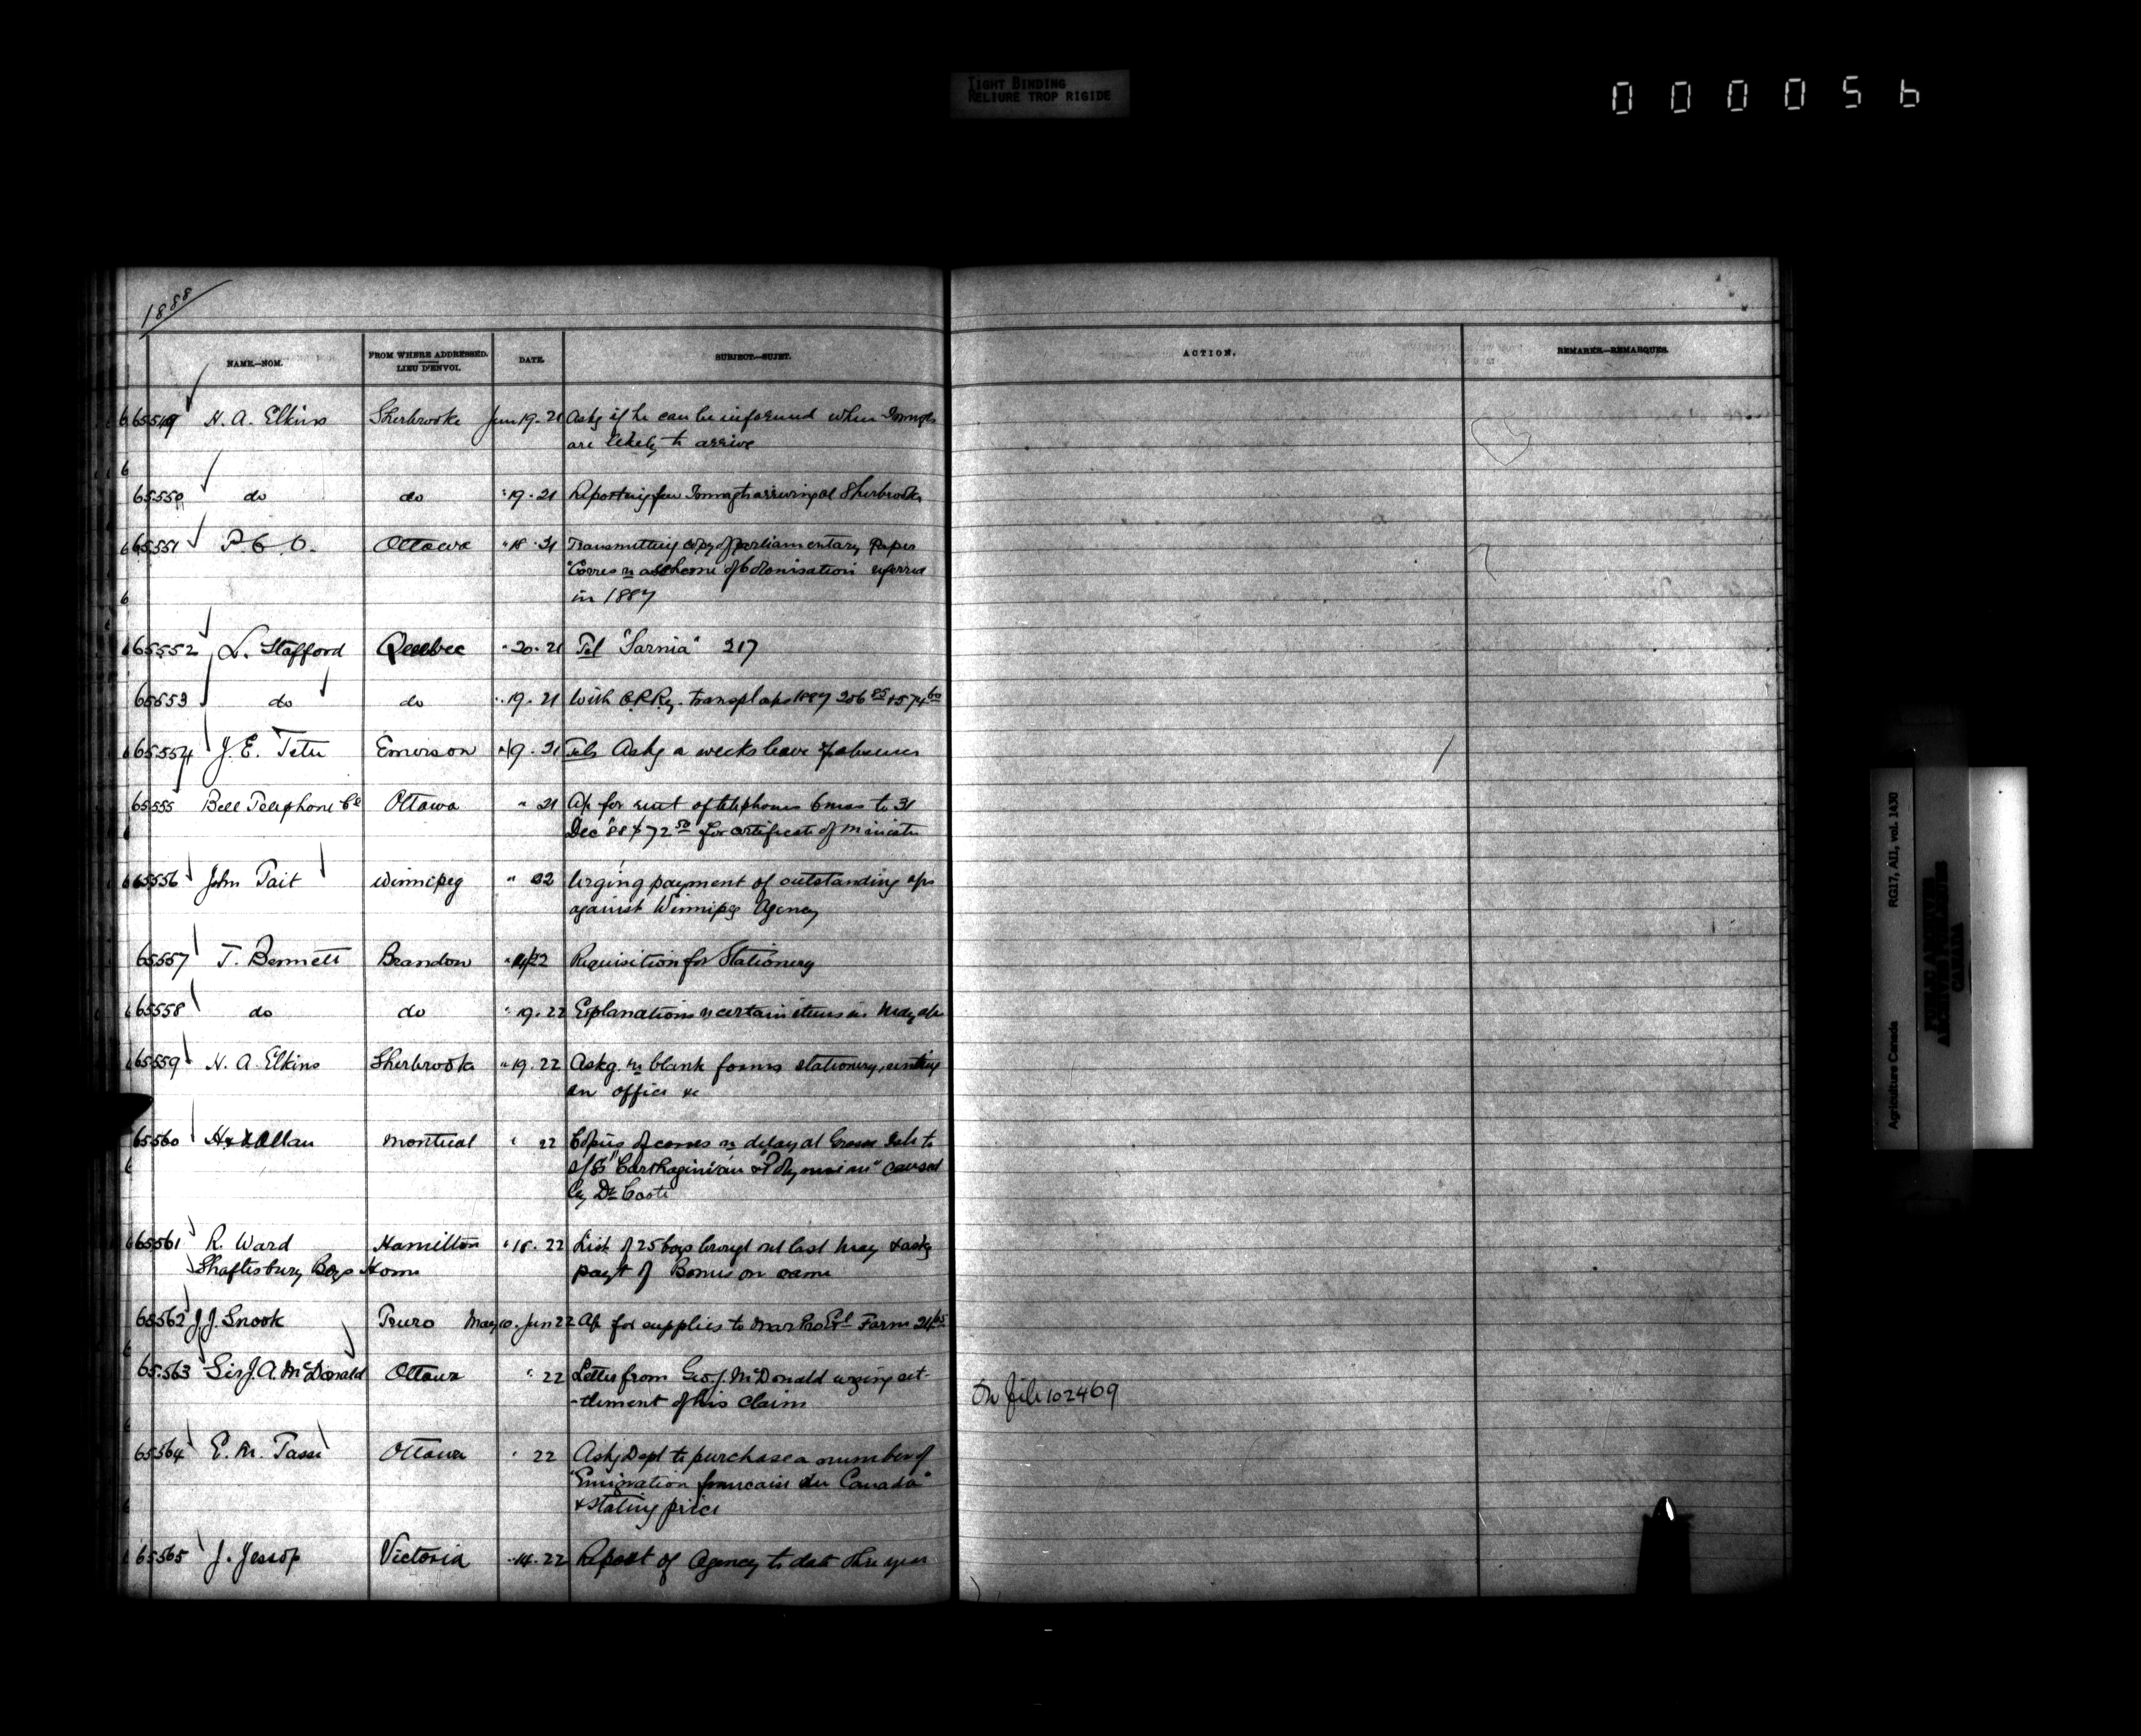 TIGHT BINDING
RELIURE TROP RIGIDE
000056
1888
NAME.—NOM.
FROM WHERE ADDRESSED.
LIEU D'ENVOI.
DATE.
SUBJECT.—SUJET.
ACTION.
REMARKS.—REMARQUES.
65549 H. A. Elkins Sherbrooke Jun 19. 21 Askg if he can be informed when Immgts
are likely to arrive
65550 do do " 19. 21 Reporting few Immgts arriving at Sherbrooke
65551 P. C. O. Ottawa " 18. 21 Transmitting copy of Parliamentary Paper
"Corres re a scheme of Colonisation referred
in 1887
65552 L. Stafford Quebec " 20. 21 Tel "Sarnia" 217
65553 do do " 19. 21 With C.P.Ry. transpt aps 1887 206 85 + 574 60
65554 J. E. Tetu Emerson " 19. 21 Tels Askg a weeks leave of absence
65555 Bell Telephone Co Ottawa " 21 Ap for rent of telephones 6 mos to 31
Dec '88 $72 50 for certificate of Minister
65556 John Tait Winnipeg " 22 Urging payment of outstanding aps
against Winnipeg Agency
65557 T. Bennett Brandon " 22 Requisition for Stationery
65558 do do " 19. 22 Explanations re certain items in May ap
65559 H. A. Elkins Sherbrooke " 19. 22 Askg. re blank forms stationery, renting
an office &c
65560 H & A Allan Montreal " 22 Copies of corres re delay at Grosse Isle to
s/s "Carthaginian & "Polynesian" caused
by Dr Coote
65561 R. Ward Hamilton " 18. 22 List of 25 boys brougt out last May & askg
Shaftesbury Boys Home payt of Bonus on same
65562 J. J. Snook Truro May 10. Jun 22 Ap for supplies to Mar Pro Exl Farm
65563 Sir J. A. McDonald Ottawa " 22 Letter from Geo. J. McDonald urging set-
-tlement of his claim
On file 102469
65564 E. M. Tassé Ottawa " 22 Askg Dept to purchase a number of
"Emigration francaise au Canada"
& stating price
65565 J. Jessop Victoria " 14. 22 Report of Agency to date this year
Agriculture Canada
RG17, AI1, vol. 1430
PUBLIC ARCHIVES
ARCHIVES PUBLIQUES
CANADA